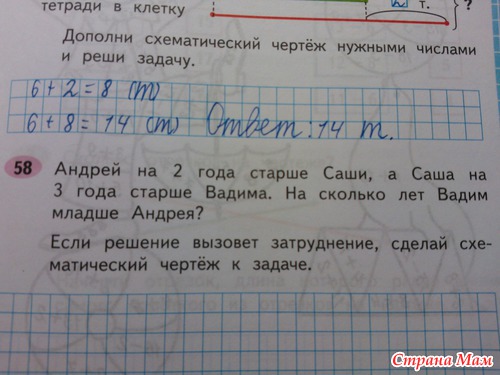 тетради в клетку
т.
?
Дополни схематический чертёж нужными числами
и реши задачу.
6 + 2 = 8 (т)
6 + 8 = 14 (т) Ответ: 14 т.
58 Андрей на 2 года старше Саши, а Саша на
3 года старше Вадима. На сколько лет Вадим
младше Андрея?
Если решение вызовет затруднение, сделай схе-
матический чертёж к задаче.
Страна Мам